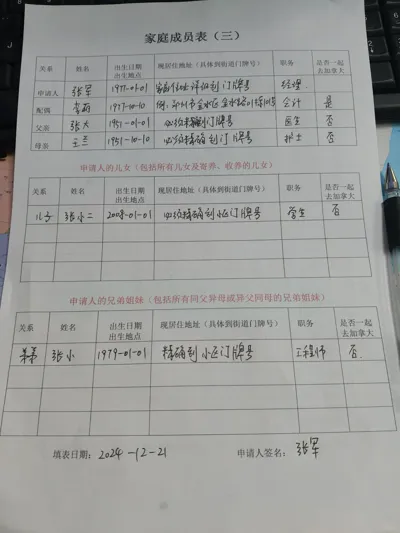 家庭成员表（三）
关系 姓名 出生日期 出生地点 现居住地址（具体到街道门牌号） 职务 是否一起去加拿大
申请人 张军 1977-01-01 门牌号 经理
配偶 李莉 1977-10-10 例：郑州市金水区金水路 会计 是
父亲 张大 1951-01-01 必须精确到门牌号 医生 否
母亲 王兰 1951-10-10 必须精确到门牌号 护士 否
申请人的儿女（包括所有儿女及寄养、收养的儿女）
关系 姓名 出生日期 出生地点 现居住地址（具体到街道门牌号） 职务 是否一起去加拿大
儿子 张小二 2008-01-01 必须精确到小区门牌号 学生 否
申请人的兄弟姐妹（包括所有同父异母或异父同母的兄弟姐妹）
关系 姓名 出生日期 出生地点 现居住地址（具体到街道门牌号） 职务 是否一起去加拿大
弟弟 张小 1979-01-01 精确到小区门牌号 工程师 否
填表日期：2024-12-21 申请人签名：张军